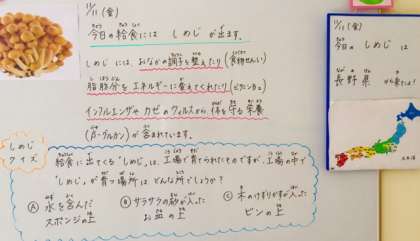 11/11 (金)
今日の給食には しめじ が出ます。
しめじ には、おなかの調子を整えたり(食物せんい)
脂肪分を エネルギーに変えてくれたり(ビタミンB₂)
インフルエンザや カゼの ウィルスから 体を守る 栄養
(β-グルカン)が 含まれています。
しめじ
クイズ
給食に出てくる"しめじ"は、工場で育てられたものですが、工場の中で
"しめじ"が育つ場所は どんな所でしょうか?
Ⓐ 水を含んだ
スポンジの上
Ⓑ サラサラの砂が入った
お皿の上
Ⓒ 木のけずりかすが入った
ビンの上
11/11 (金)
今日の しめじ は
長野県 から来たよ!